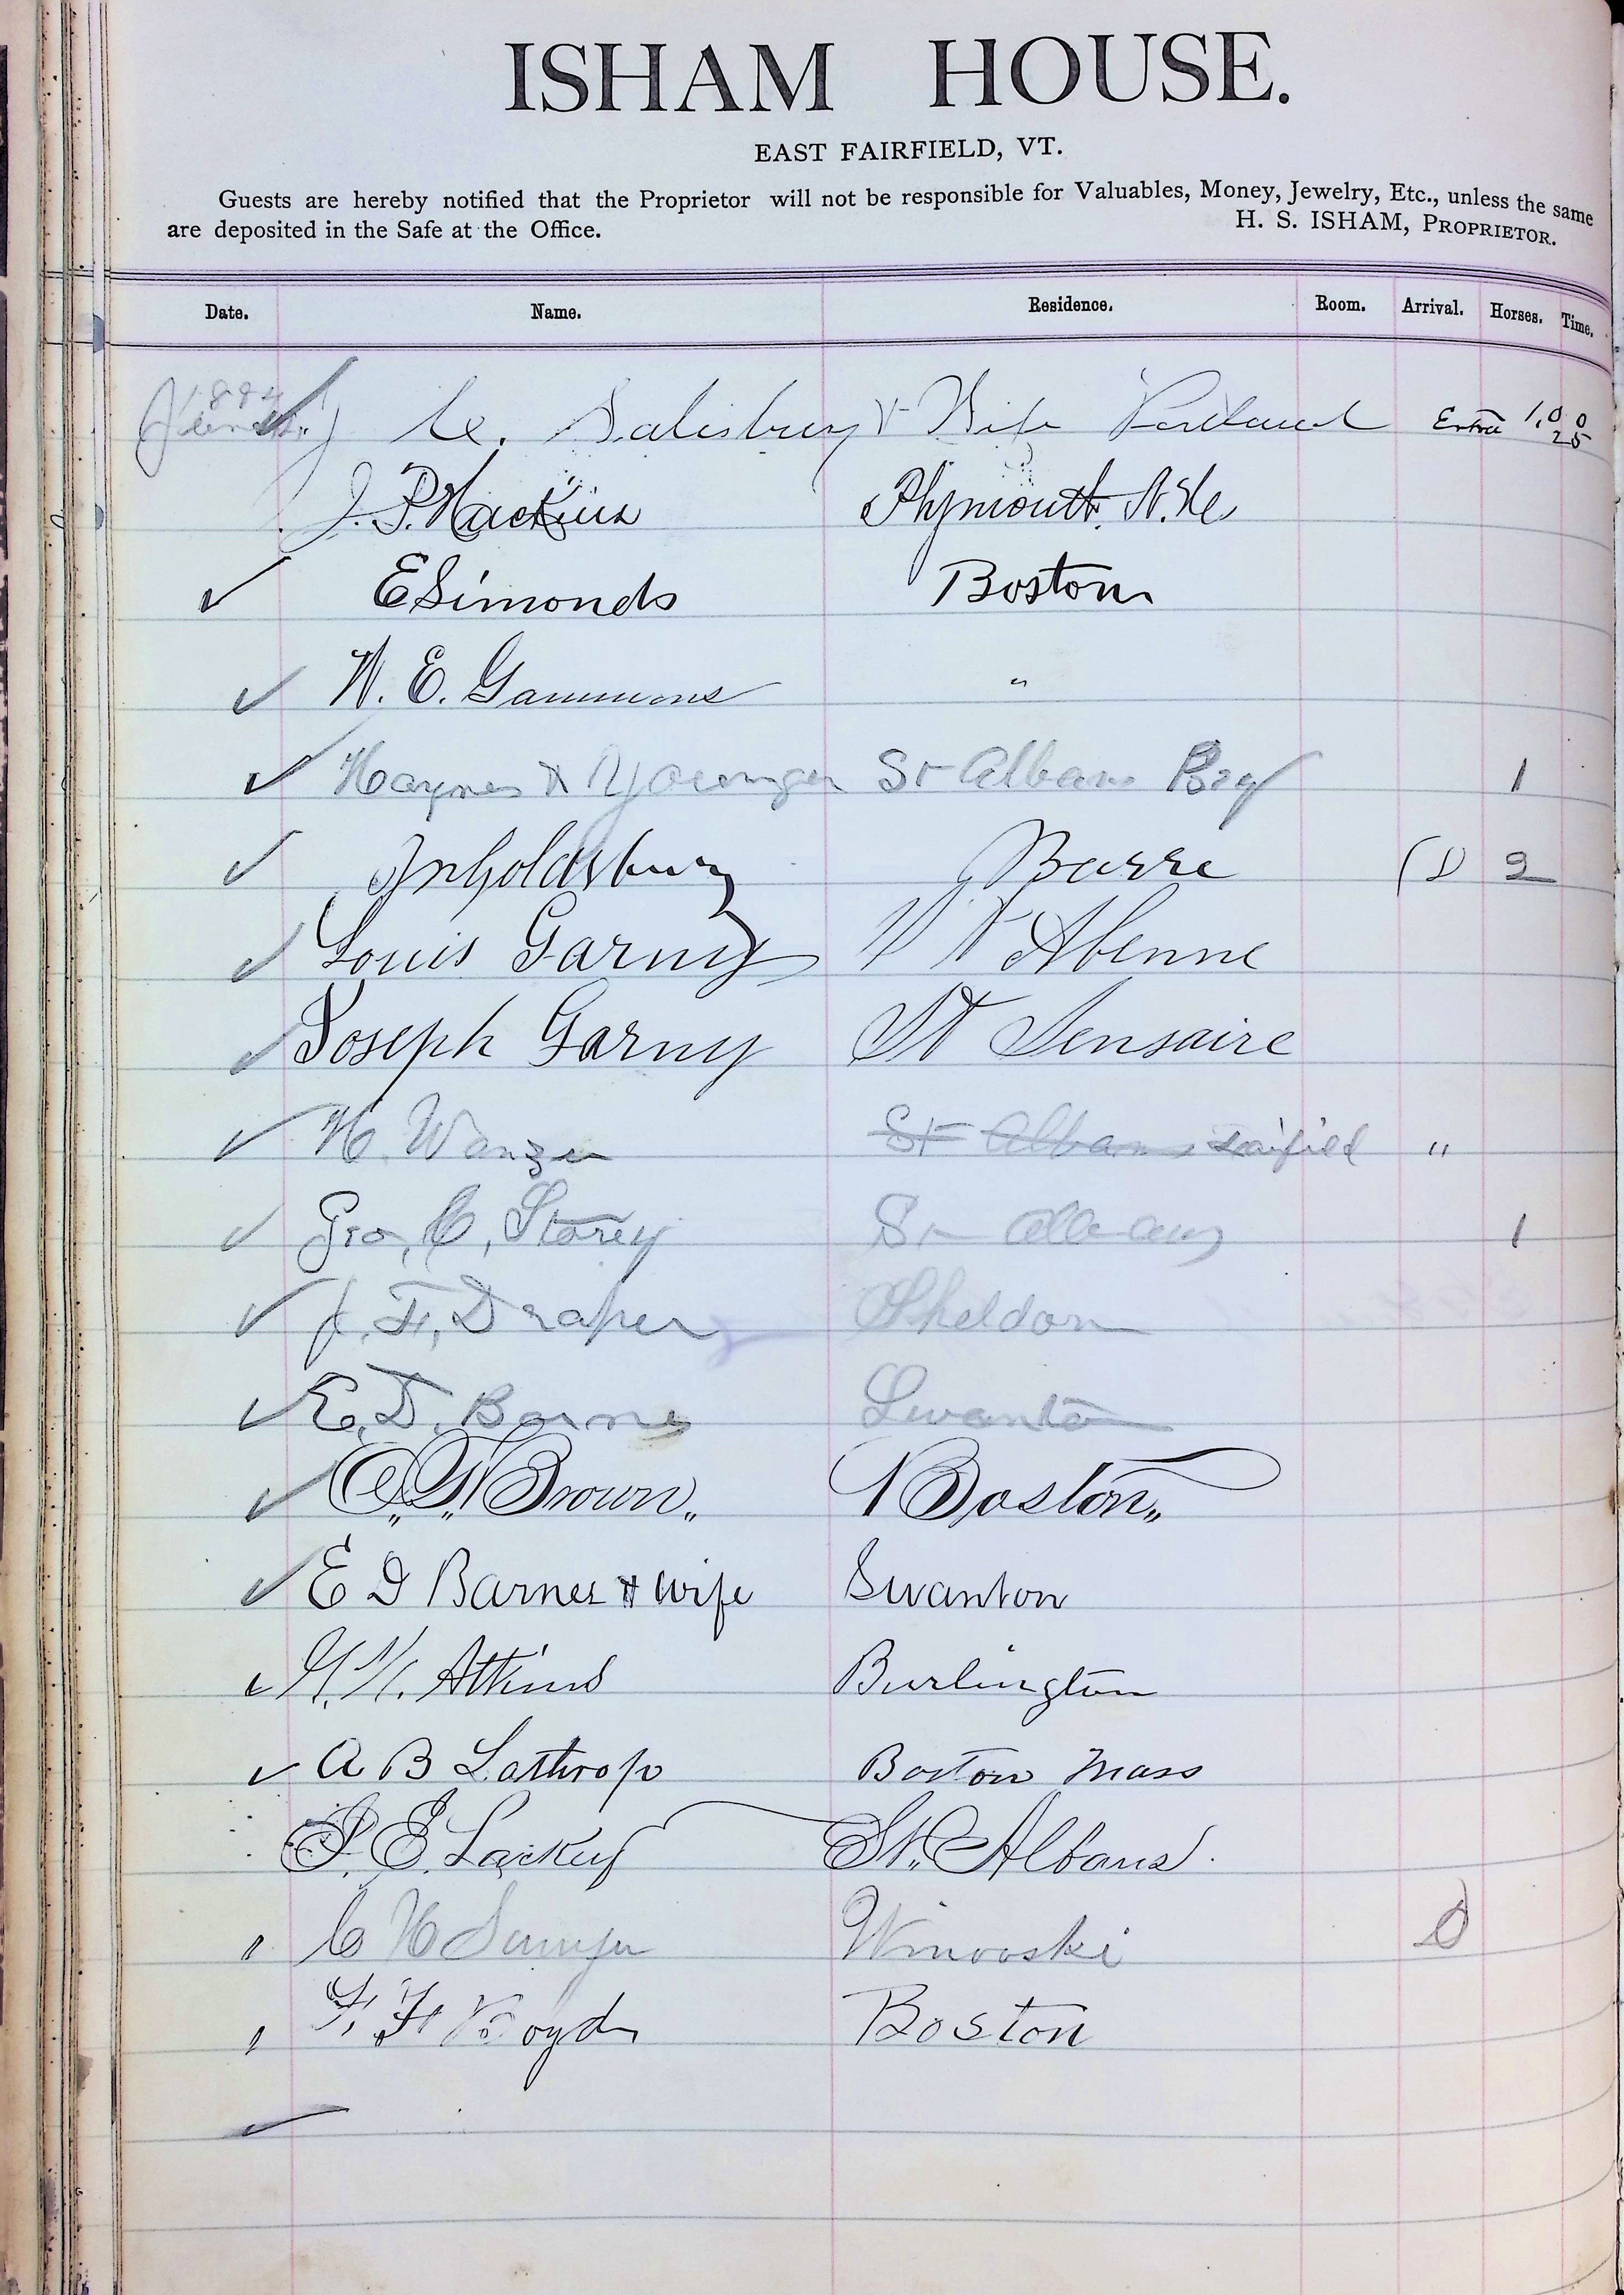 ISHAM HOUSE.
EAST FAIRFIELD, VT.
Guests are hereby notified that the Proprietor will not be responsible for Valuables, Money, Jewelry, Etc., unless the same
are deposited in the Safe at the Office. H. S. ISHAM, PROPRIETOR.
Date. Name. Residence. Room. Arrival. Horses. Time.
C. Salisbury & Wife Portland Extra 1,00
25
J. P. Plymouth. N.H.
E Simonds Boston
W. E. Gammons "
Haynes & Younger St Albans Bay 1
Ingoldsbury Barre (D 2
Louis Garny St Abenne
Joseph Garny St Sensaire
H. Wanzer St Albans Fairfield "
Geo, C, Storey St Albans 1
J. F. Draper Sheldon
E. D. Barnes Swanton
C,, G,, Brown,, Boston,,
E D Barnes & wife Swanton
Atkins Burlington
A B Lathrop Boston Mass
E. Lackey St,, Albans.
C H Sawyer Winooski D
F. F. Boyd Boston